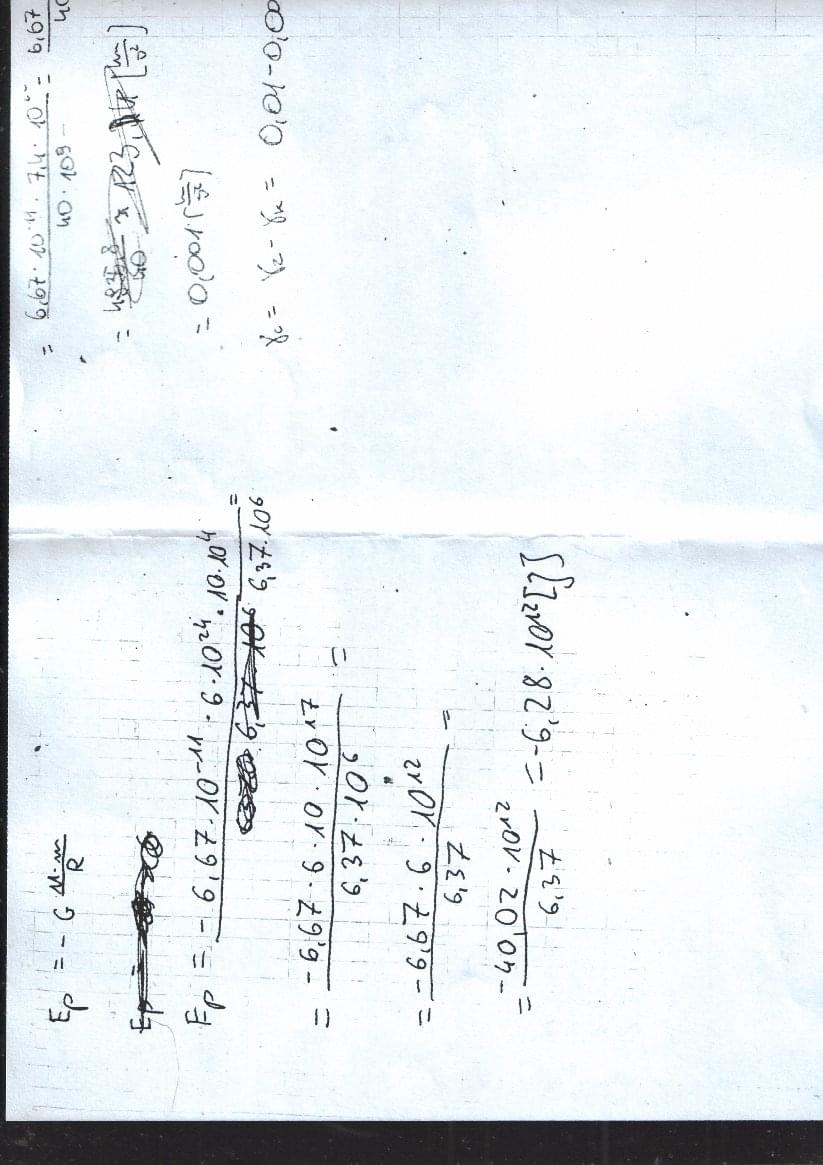 E_p = - G \frac{M \cdot m}{R}
E_p = - \frac{6,67 \cdot 10^{-11} \cdot 6 \cdot 10^{24} \cdot 10 \cdot 10^4}{6,37 \cdot 10^6} =
= \frac{-6,67 \cdot 6 \cdot 10 \cdot 10^{17}}{6,37 \cdot 10^6} =
= \frac{-6,67 \cdot 6 \cdot 10^{12}}{6,37} =
= \frac{-40,02 \cdot 10^{12}}{6,37} = -6,28 \cdot 10^{12} [J]
= \frac{6,67 \cdot 10^{-11} \cdot 7,4 \cdot 10}{40 \cdot 10^9} = \frac{6,67}{40}
= 0,001 [\frac{m}{s^2}]
γ_c = γ_z - γ_k = 0,01 - 0,00